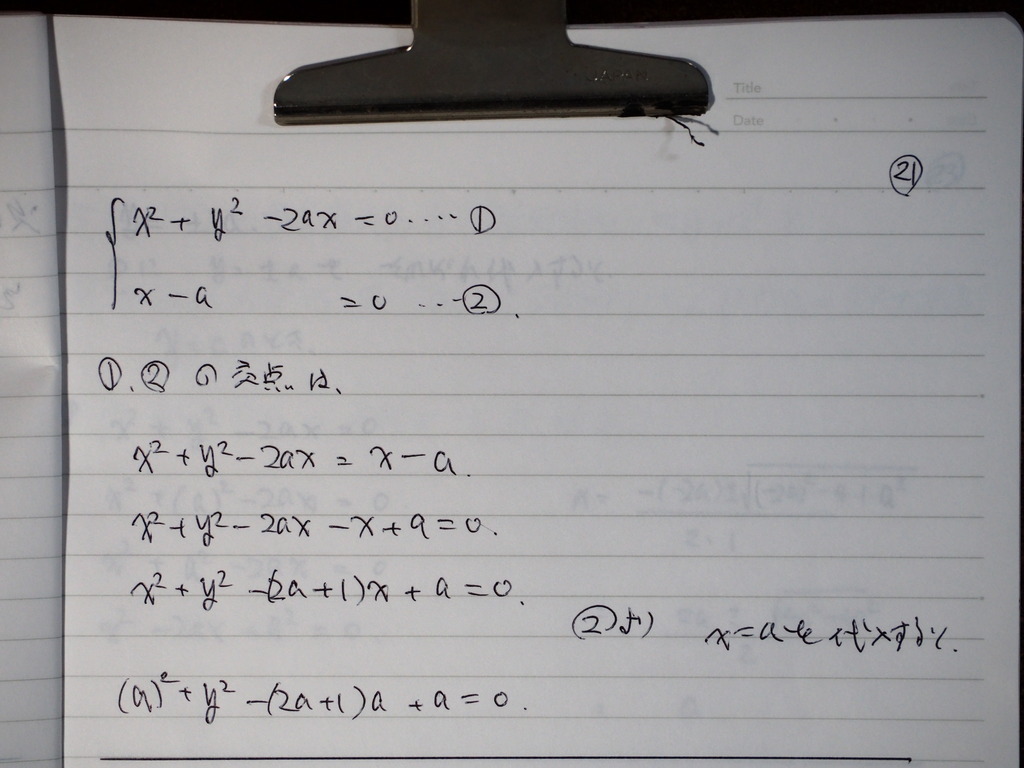 JAPAN
Title
Date
㉑
x² + y² - 2ax = 0 ····· ①
x - a = 0 ····②.
①、② の 交点は、
x² + y² - 2ax = x - a.
x² + y² - 2ax - x + a = 0.
x² + y² - (2a+1)x + a = 0.
②より x = a を 代入すると.
(a)² + y² - (2a+1)a + a = 0.